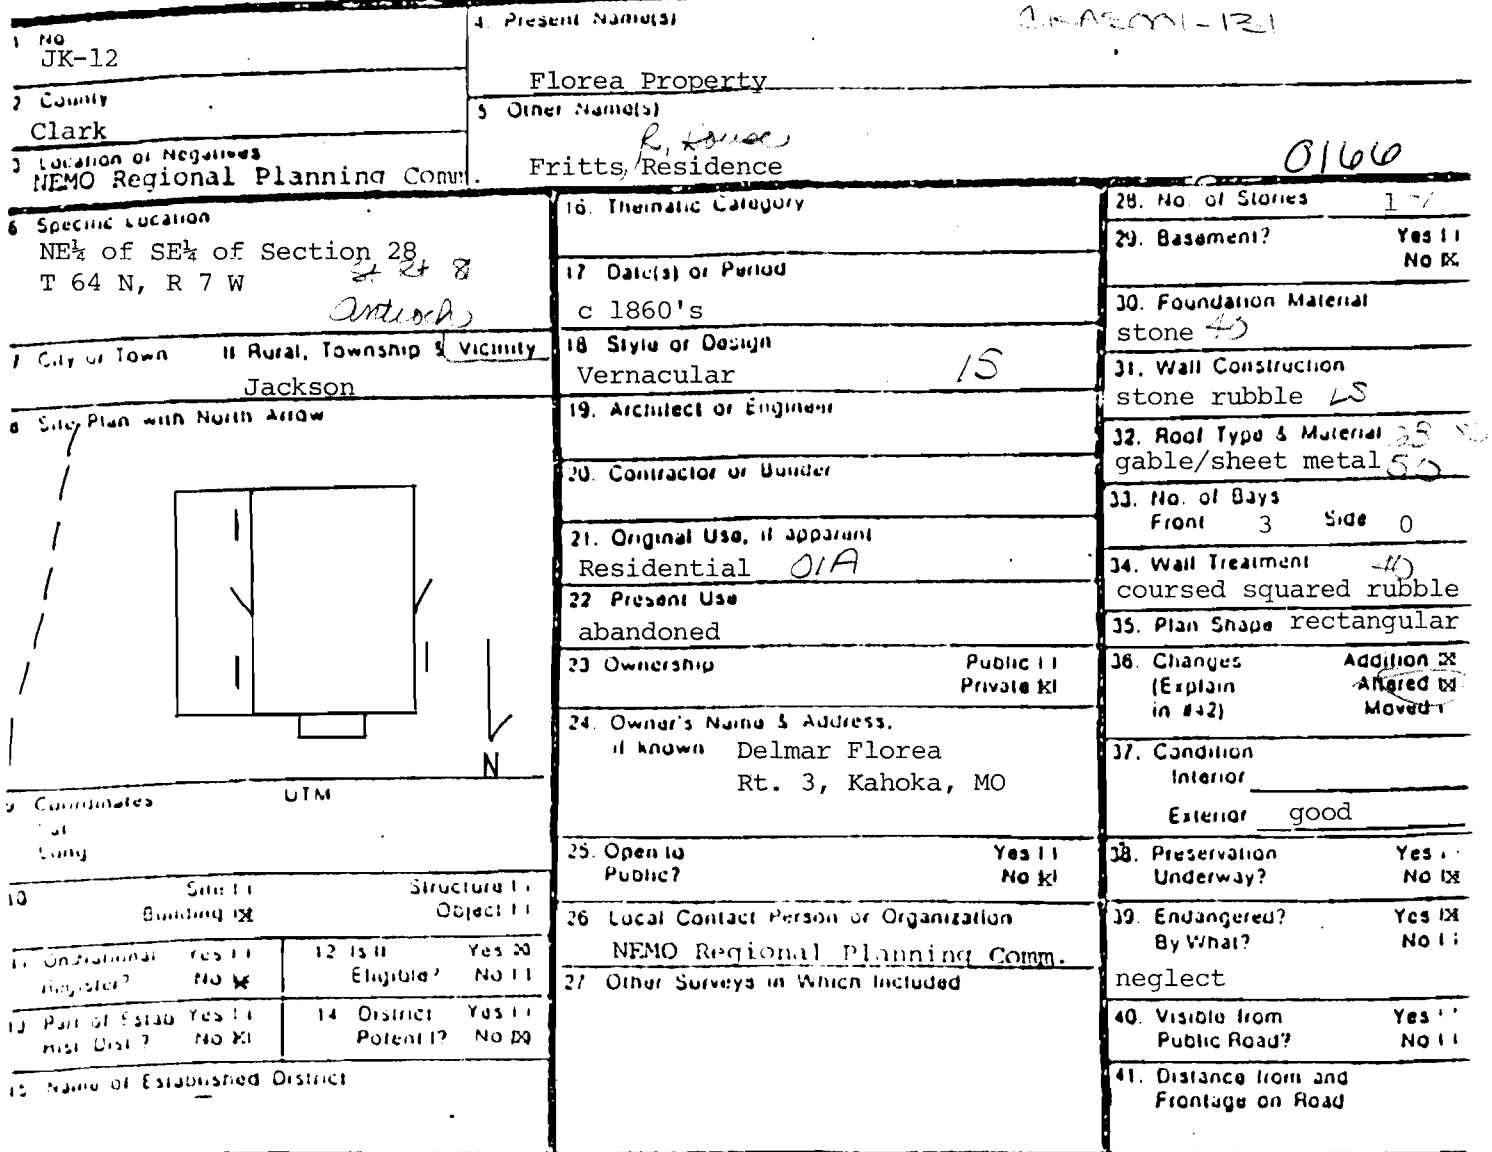 1 No
JK-12
4. Present Name(s)
Florea Property
2 County
Clark
5 Other Name(s)
R. House
Fritts/Residence
0166
3 Location of Negatives
NEMO Regional Planning Comm.
6 Specific Location
NE¼ of SE¼ of Section 28
T 64 N, R 7 W
St Rt 8
Antioch
7 City or Town If Rural, Township & Vicinity
Jackson
8 Site Plan with North Arrow
N
9 Coordinates UTM
Lat
Long
10 Site [ ] Structure [ ]
Building [x] Object [ ]
11 On National Register? Yes [ ] No [x]
12 Is It Eligible? Yes [x] No [ ]
13 Part of Estab Hist Dist? Yes [ ] No [x]
14 District Potent'l? Yes [ ] No [x]
15 Name of Established District
16. Thematic Category
17 Date(s) or Period
c 1860's
18 Style or Design
Vernacular 15
19. Architect or Engineer
20. Contractor or Builder
21. Original Use, if apparent
Residential 01A
22 Present Use
abandoned
23 Ownership Public [ ]
Private [x]
24. Owner's Name & Address,
if known Delmar Florea
Rt. 3, Kahoka, MO
25. Open to Public? Yes [ ]
No [x]
26 Local Contact Person or Organization
NEMO Regional Planning Comm.
27 Other Surveys in Which Included
28. No. of Stories 1
29. Basement? Yes [ ]
No [x]
30. Foundation Material
stone 40
31. Wall Construction
stone rubble LS
32. Roof Type & Material
gable/sheet metal 50
33. No. of Bays
Front 3 Side 0
34. Wall Treatment 40
coursed squared rubble
35. Plan Shape rectangular
36. Changes Addition [x]
(Explain Altered [x]
in #42) Moved [ ]
37. Condition
Interior
Exterior good
38. Preservation Yes [ ]
Underway? No [x]
39. Endangered? Yes [x]
By What? No [ ]
neglect
40. Visible from Yes [ ]
Public Road? No [ ]
41. Distance from and
Frontage on Road